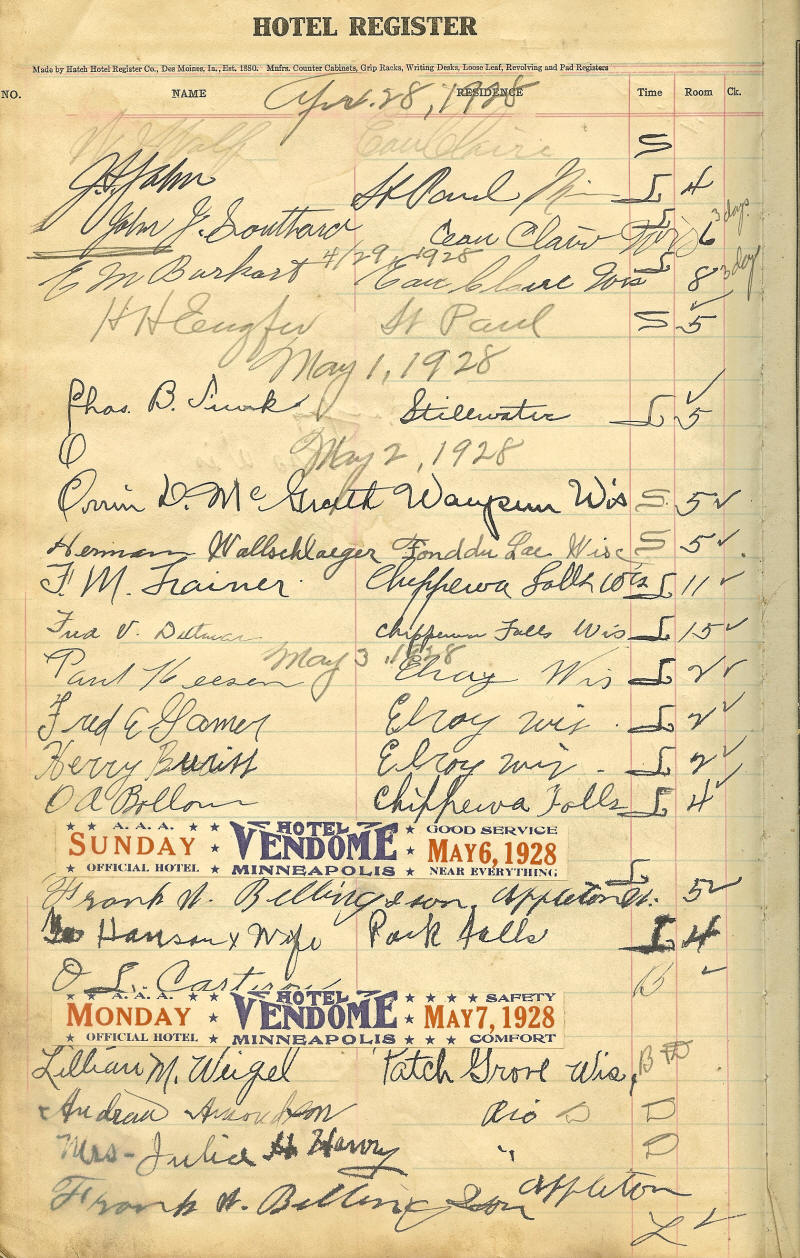 HOTEL REGISTER
Made by Hatch Hotel Register Co., Des Moines, Ia., Est. 1880. Mnfrs. Counter Cabinets, Grip Racks, Writing Desks, Loose Leaf, Revolving and Pad Registers
NO. NAME RESIDENCE Time Room Ck.
Apr. 28, 1928
Eau Claire S
St Paul L 4
John J. Southard Eau Claire Wis L 6 3 days
4/29, 1928
E M Burkart Eau Claire Wis L 8 3 day
H H St Paul S 5 ✓
May 1, 1928
Chas. B. Stillwater L 5 ✓
O
May 2, 1928
Orrin D. McGrath Waupun Wis S 5 ✓
Herman Wallschlaeger Fond du Lac Wisc S 5 ✓
F. M. Trainer Chippewa Falls Wis L 11 ✓
Fred V. Dettman Chippewa Falls Wis L 15 ✓
May 3, 1928
Paul Keesen Elroy Wis L 2 ✓
Fred E Garner Elroy Wis. L 2 ✓
Elroy Wis. L 2 ✓
O A Chippewa Falls L 4 ✓
A.A.A. HOTEL GOOD SERVICE
SUNDAY VENDOME MAY 6, 1928
OFFICIAL HOTEL MINNEAPOLIS NEAR EVERYTHING
Frank H. Appleton L 5 ✓
Hanson & Wife Park Falls L 4
O L. B ✓
A.A.A. HOTEL SAFETY
MONDAY VENDOME MAY 7, 1928
OFFICIAL HOTEL MINNEAPOLIS COMFORT
Lillian M. Weigel Patch Grove Wis, B D
Andrew Amondson Rio D D
Mrs - Julia H Harvy " D
Frank H. Appleton
L ✓